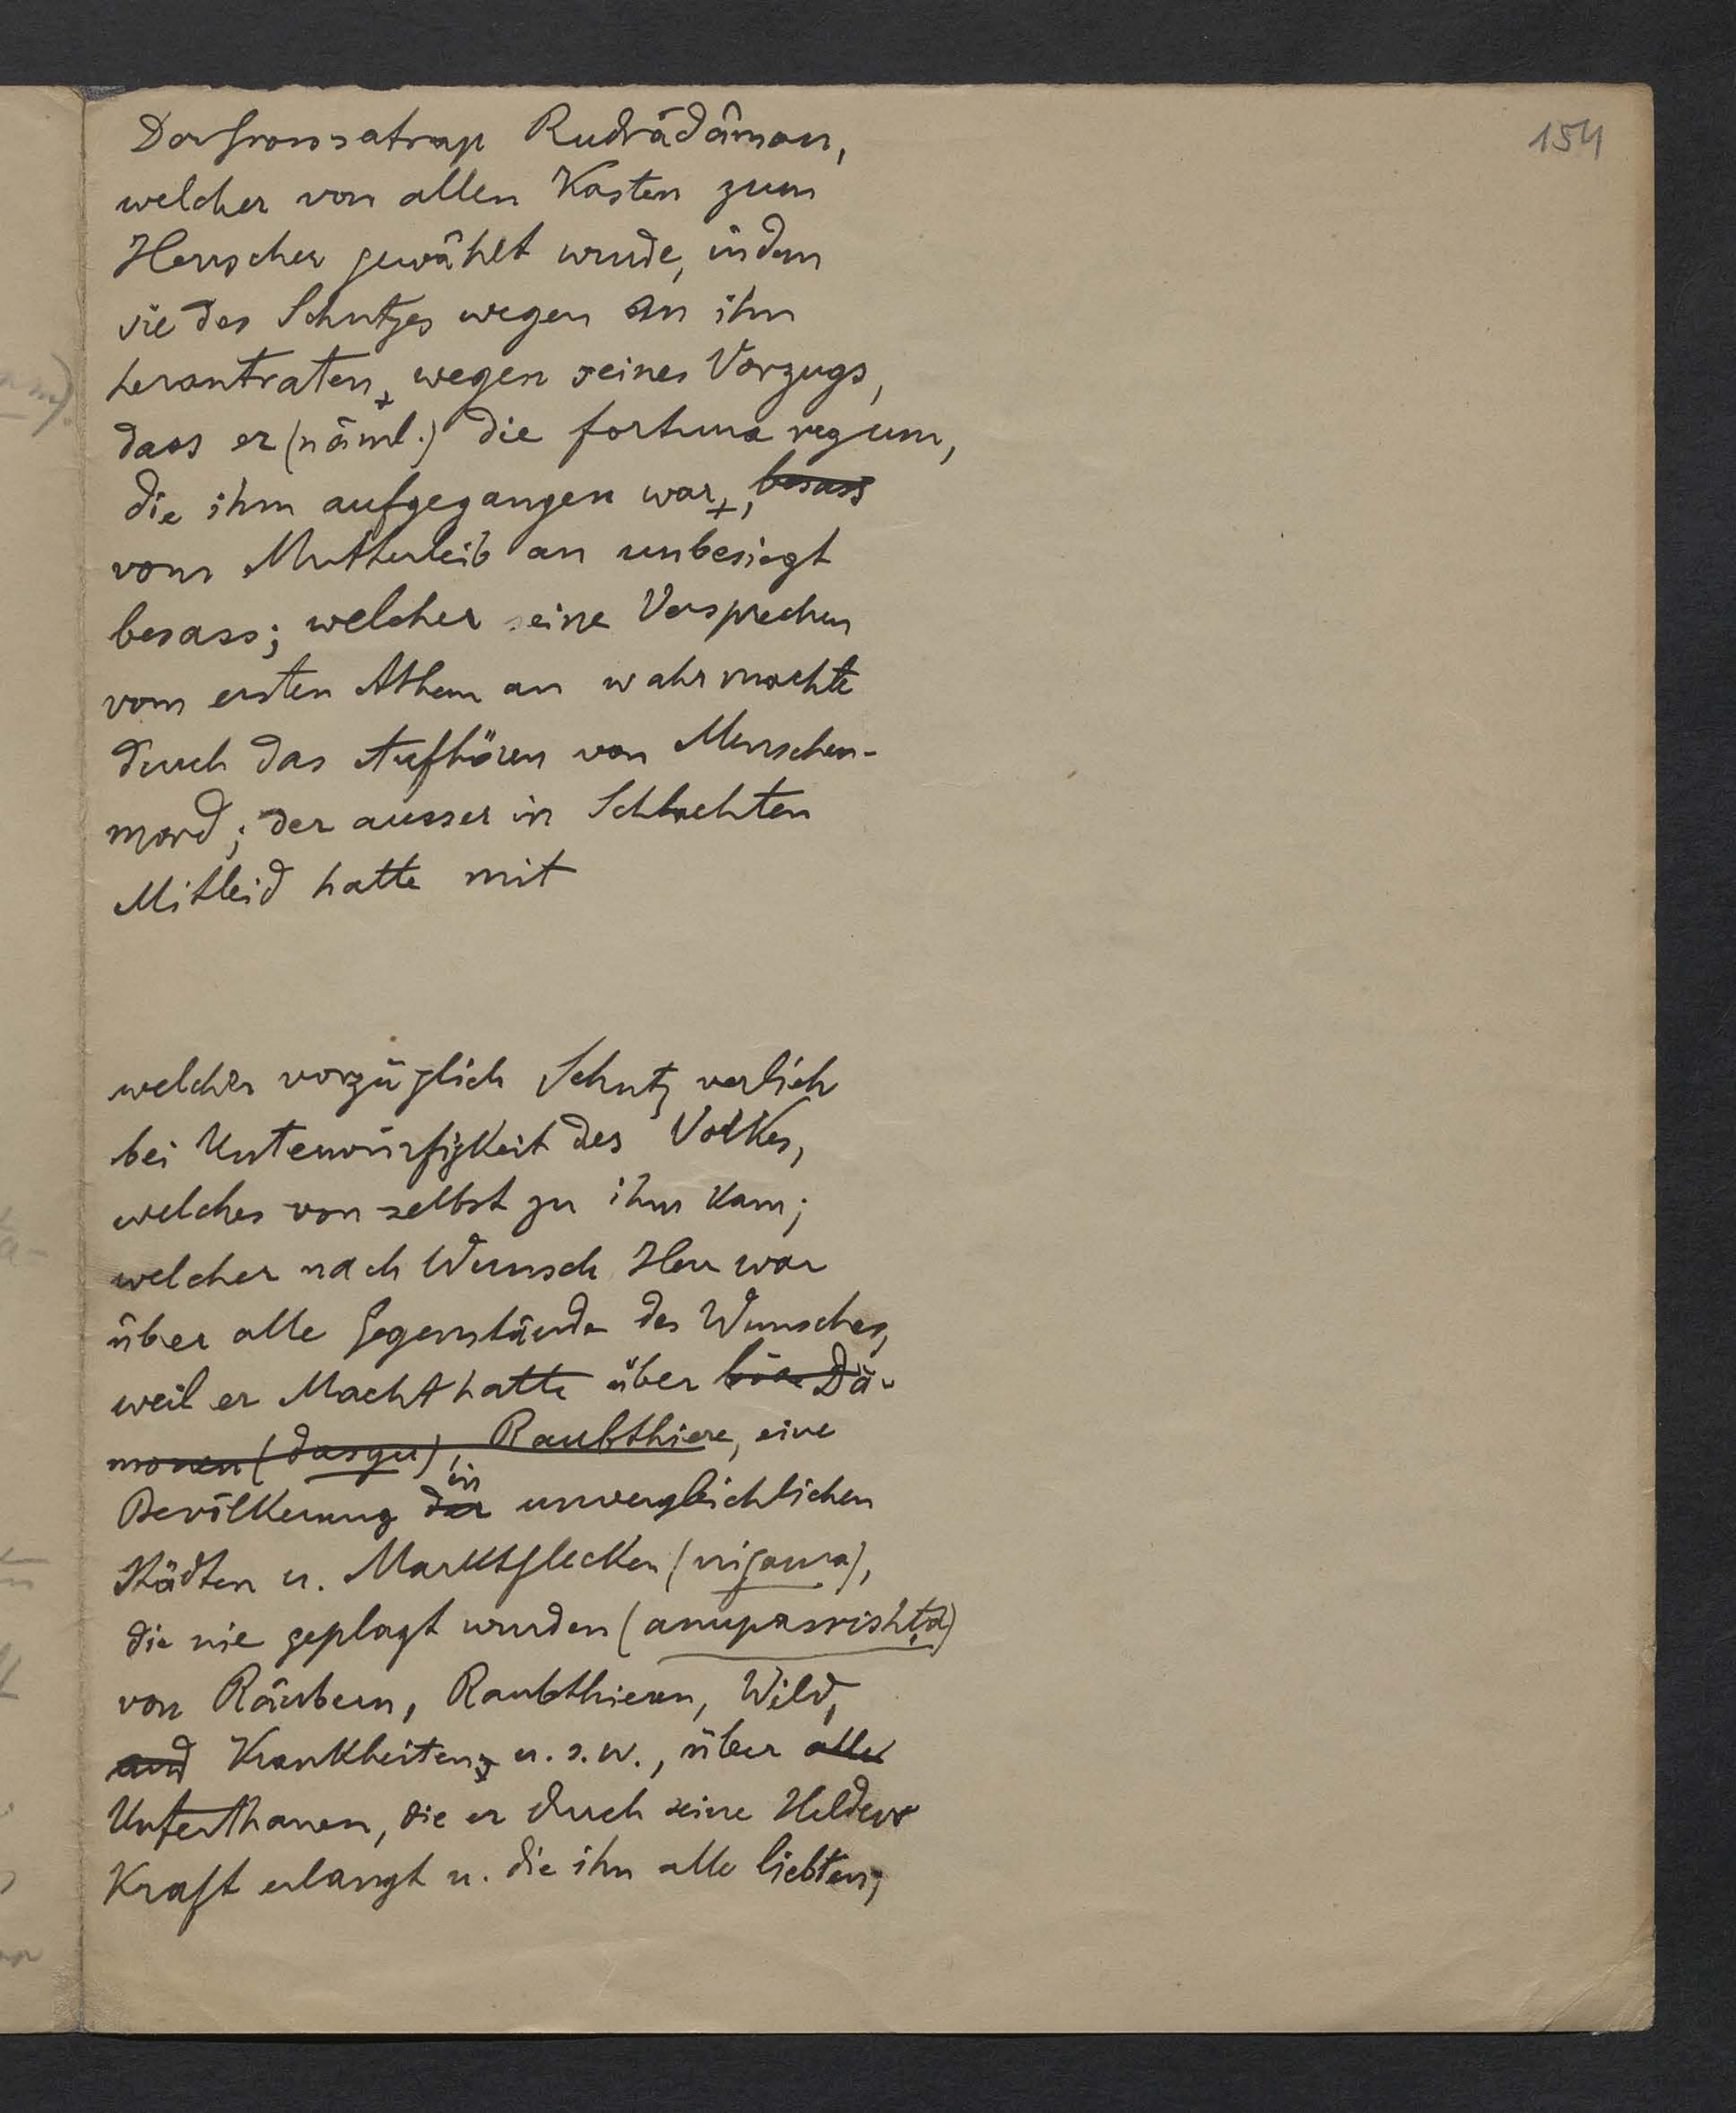 154
Der Grosssatrap Rudrādâman,
welcher von allen Kasten zum
Herrscher gewählt wurde, indem
sie des Schutzes wegen an ihn
herantraten, wegen seines Vorzugs,
dass er (näml.) die fortuna regum,
die ihm aufgegangen war, besass
vom Mutterleib an unbesiegt
besass; welcher seine Versprechen
vom ersten Athem an wahr machte
durch das Aufhören von Menschen-
mord; der ausser in Schlachten
Mitleid hatte mit
welcher vorzüglich Schutz verlieh
bei Unterwürfigkeit des Volkes,
welches von selbst zu ihm kam;
welcher nach Wunsch Herr war
über alle Gegenstände des Wunsches,
weil er Macht hatte über böse Dä-
monen (dasyu), Raubthiere, eine
Bevölkerung der in unvergleichlichen
Städten u. Marktflecken (nigama),
die nie geplagt wurden (anupasrishṭa)
von Räubern, Raubthieren, Wild,
und Krankheiten, u. s. w., über alle
Unterthanen, die er durch seine Helden
Kraft erlangt u. die ihn alle liebten;